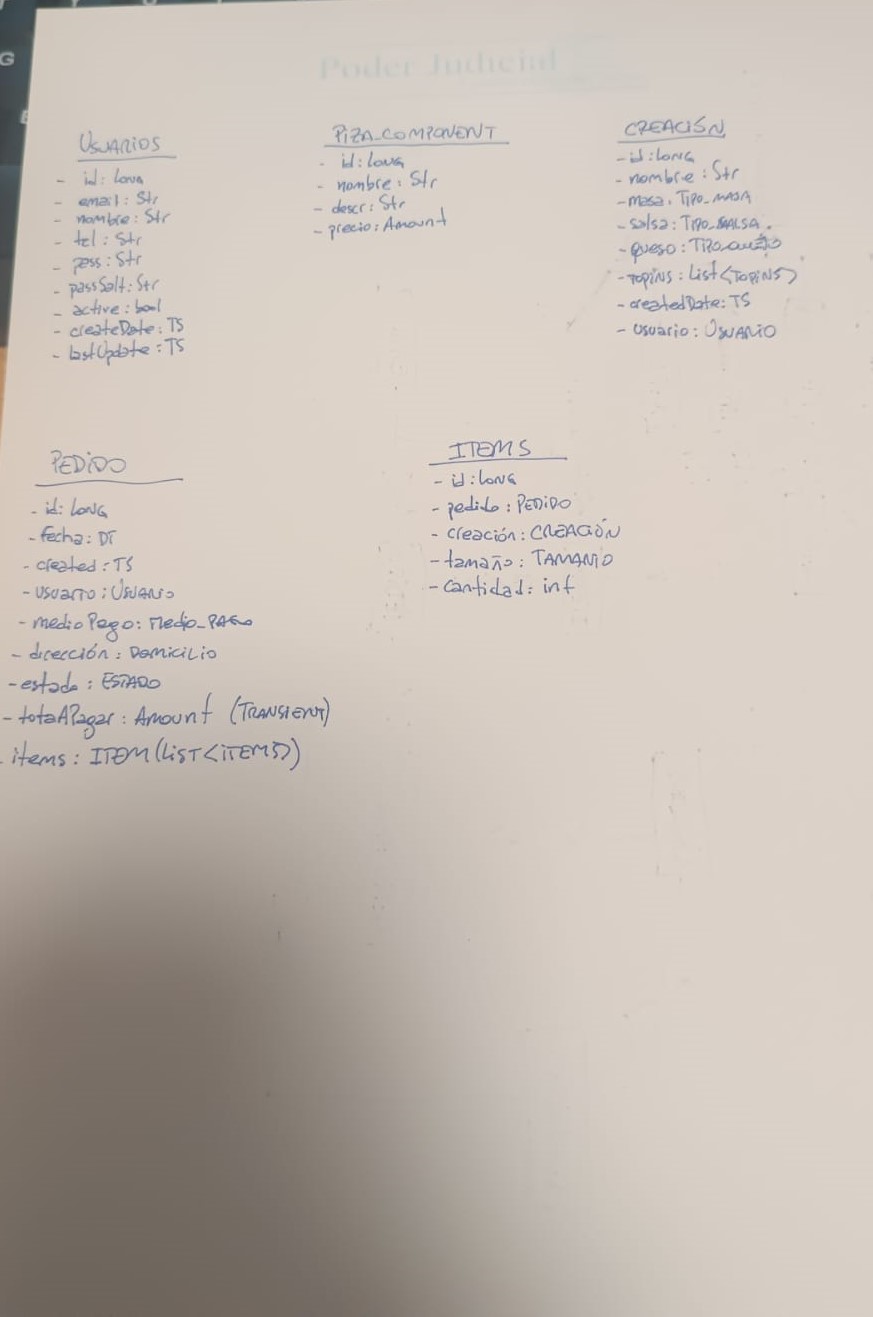 G
Poder Judicial
USUARIOS
- id: Long
- email: Str
- nombre: Str
- tel: Str
- pass: Str
- passSalt: Str
- active: bool
- createDate: TS
- lastUpdate: TS
PIZA_COMPONENT
- id: Long
- nombre: Str
- descr: Str
- precio: Amount
CREACIÓN
- id: Long
- nombre: Str
- masa: TIPO_MASA
- salsa: TIPO_SALSA
- queso: TIPO_QUESO
- TOPINS: List<TOPINS>
- createdDate: TS
- usuario: USUARIO
PEDIDO
- id: Long
- fecha: DT
- created: TS
- usuario: USUARIO
- medioPago: Medio_PAGO
- dirección: Domicilio
- estado: ESTADO
- totaAPagar: Amount (TRANSIENT)
- items: ITEM (LIST<ITEMS>)
ITEMS
- id: Long
- pedido: PEDIDO
- creación: CREACIÓN
- tamaño: TAMANIO
- cantidad: int